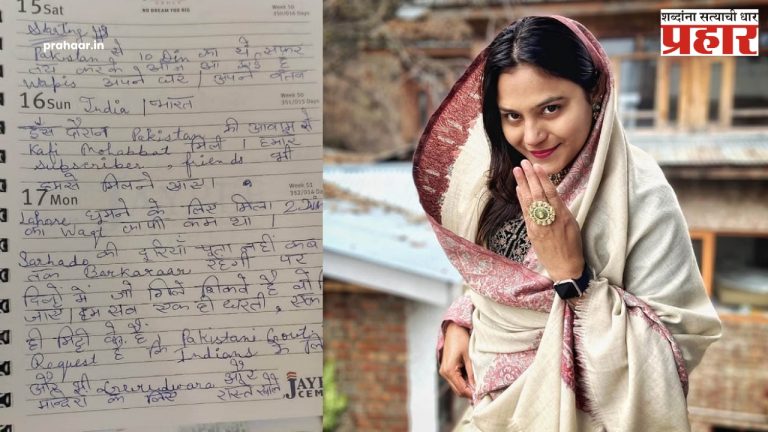 15 Sat
NO DREAM TOO BIG
Week 50
350/016 Days
prahaar.in
Pakistan से 10 Din का ये सफर
Wapis अपने घर / अपने वतन
16 Sun
India / भारत
Week 50
351/015 Days
Pakistan की आवाम से
Kafi Mohabbat मिली । हमारे
subscriber, friends भी
हमसे मिलने आए ।
17 Mon
Week 51
352/014 Days
Lahore घूमने के लिए मिला 2 दिन
का Waqt काफी कम था ।
Sarhado की दूरियाँ पता नहीं कब
तक Barkaraar रहेगी पर
दिलों में जो गिले शिकवे है वो मिट
जाएं हम सब एक ही धरती, एक
ही मिट्टी के है ।
Pakistani Govt. से
Request है कि Indians के लिए
और भी Gurudwara और
मन्दिरों के लिए रास्ते खोले
JAYP
CEM
शब्दांना सत्याची धार
प्रहार